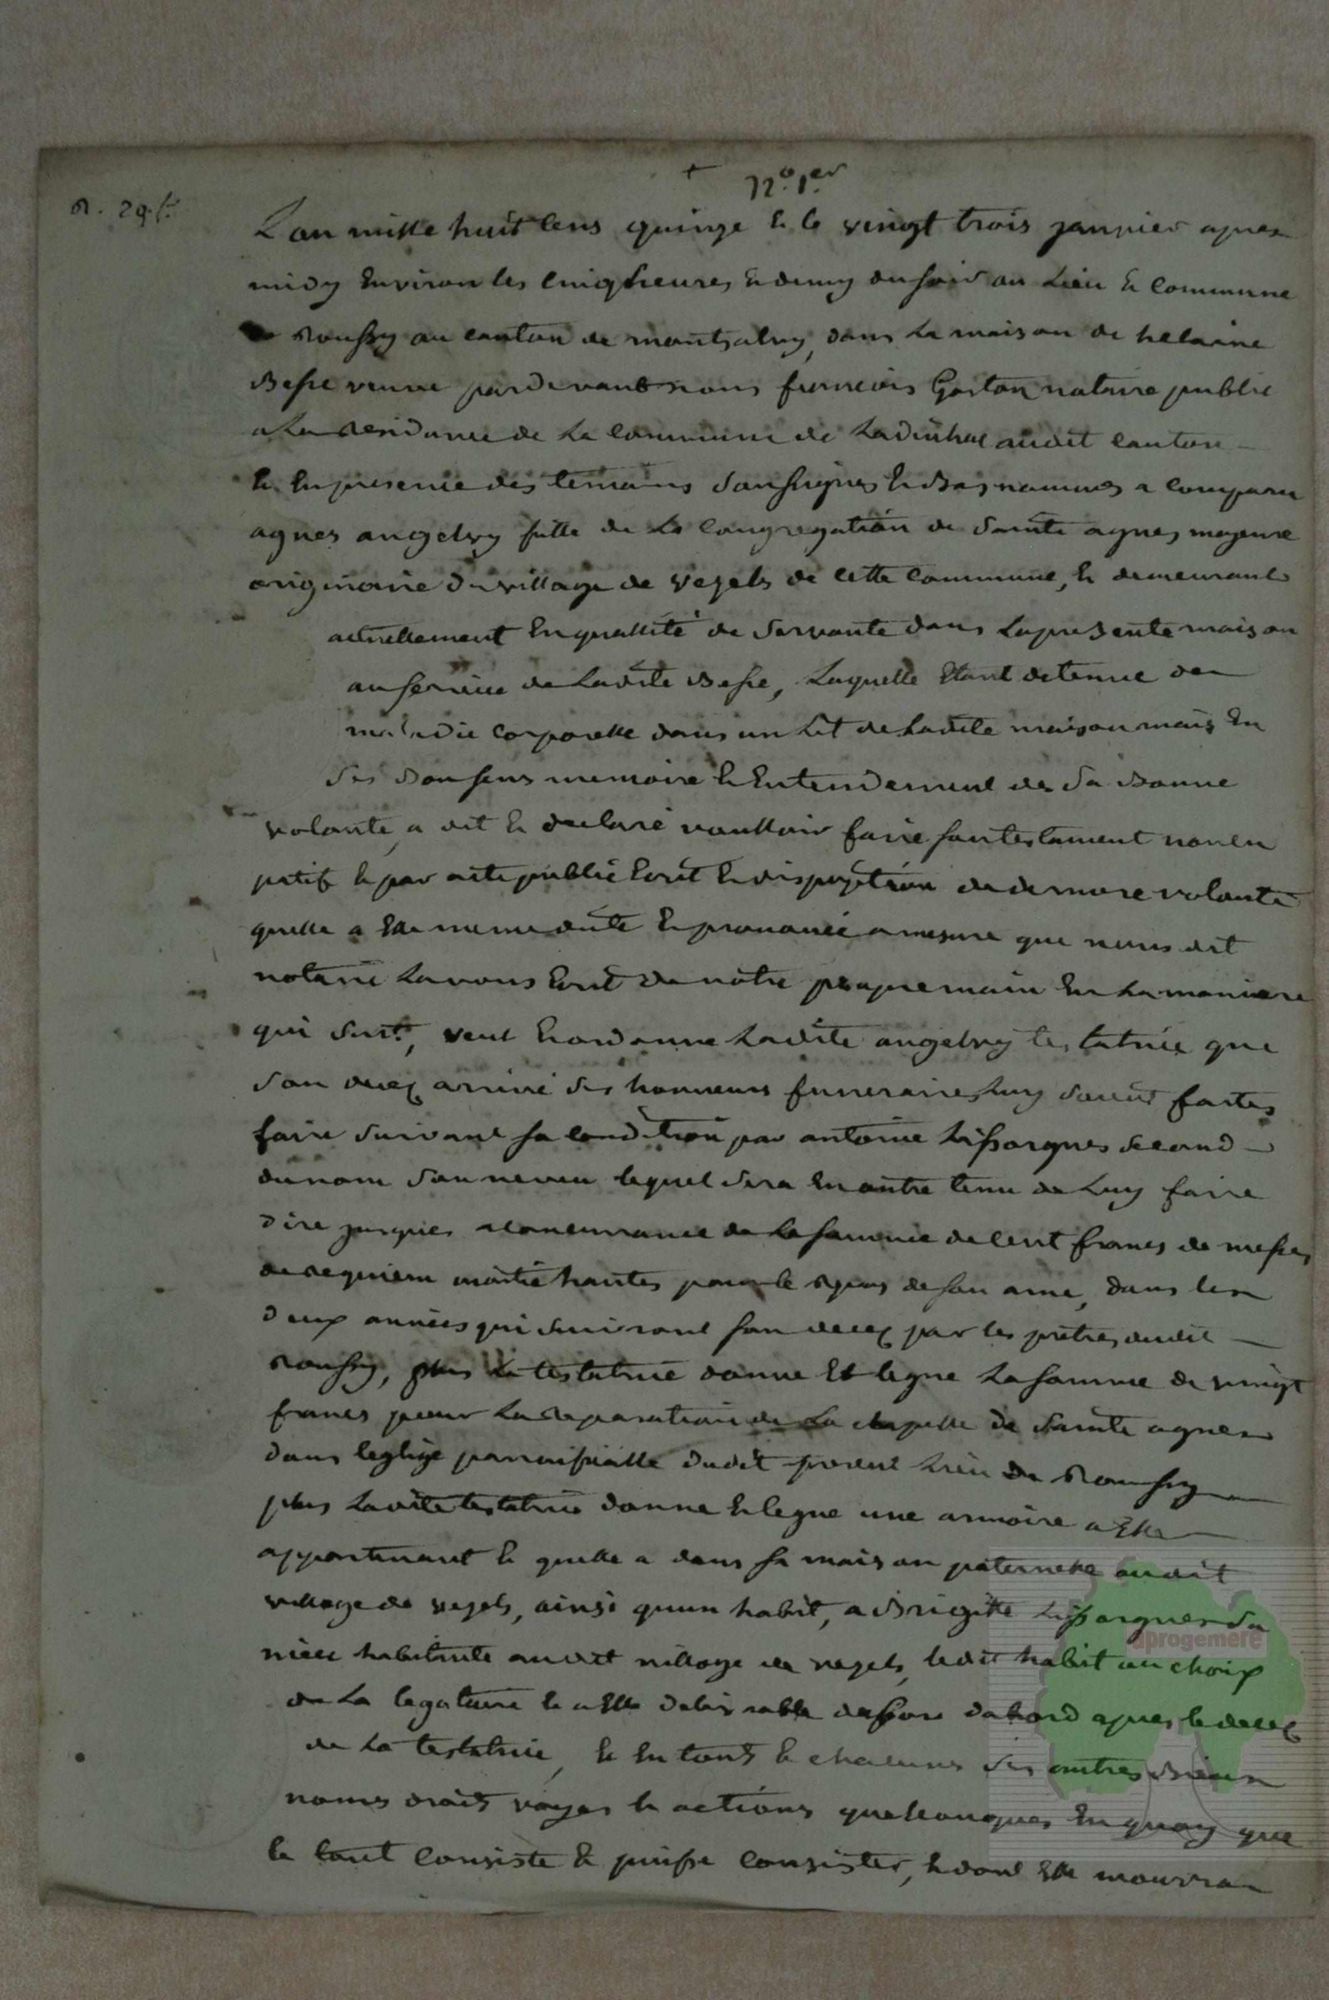 + N.o 1.er
R. 29 f.
L'an mille huit cens quinze & le vingt trois janvier apres
midy Environ les Cinq heures & demy du soir au Lieu & Commune
de Roussy au canton de montsalvy, dans la maison de helaine
Besse veuve pardevant nous francois Gaston notaire public
a La residance de La Commune de Ladinhac audit canton
& En presence des temoins soussignes & Bas nommes a comparu
agnes angelvy fille de La Congregation de Sainte agnes majeure
originaire du village de vezels de cette Commune, & demeurant
actuellement En quallité de Servante dans La presente maison
au service de Ladite Besse, Laquelle Etant detenue de
maladie corporelle dans un Lit de Ladite maison mais En
Ses Bon sens memoire & Entendement de Sa Bonne
volonté, a dit & declaré voulloir faire son testament noncu
patif & par acte public Ecrit & disposition de derniere volonté
quelle a Elle meme dicté & prononcé a mesure que nous dit
notaire Lavons Ecrit de notre propre main En La maniere
qui Suit, veut & ordonne Ladite angelvy testatrice que
Son decez arrivé Ses honneurs funeraires Luy Soint faites
faire Suivant sa Condition par antoine Lissorgues Second
du nom Son neveu lequel Sera En outre tenu de Luy faire
dire jusques a concurrance de La somme de Cent francs de messes
de requiem moitié hautes pour le repos de son ame, dans les
deux années qui Suivront son decez par les pretres dudit
Roussy, plus La testatrice donne Et legue La somme de vingt
francs pour La reparation de La chapelle de Sainte agnes
dans leglize parroissialle dudit present Lieu de Roussy
plus Ladite testatrice donne & legue une armoire a Elle
appartenant & quelle a dans sa maison paternelle audit
village de vezels, ainsi quun habit, a Brigitte Lissorgues Sa
niece habitante audit village de vezels, ledit habit au choix
de La legataire & a Elle delivrable dessore dabord apres le decez
de La testatrice, & En touts & chacuns Ses autres Biens
noms droits voyes & actions quelconques En quoy que
le tout Consiste & puisse Consister, & dont Elle mourra
aprogemere